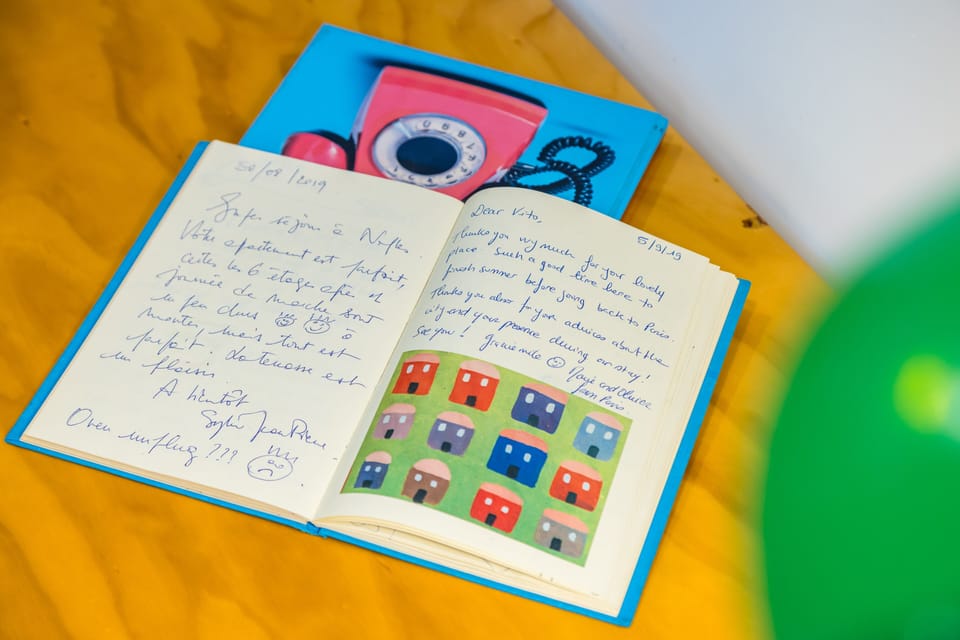 30/08/2019
Super séjour à Naples.
Votre apartement est parfait,
certes les 6 étages après 1
journée de marche sont
un peu durs à
monter, mais tout est
parfait. La terrasse est
un plaisir.
A bientôt
Sylvie Jean Pierre.
Oven unplug ???
5/9/19
Dear Vito,
Thanks you very much for your lovely
place. Such a good time here to
finish summer before going back to Paris.
Thanks you also for your advices about the
city and your presence during our stay!
See you! Grazie mille
and
from Paris